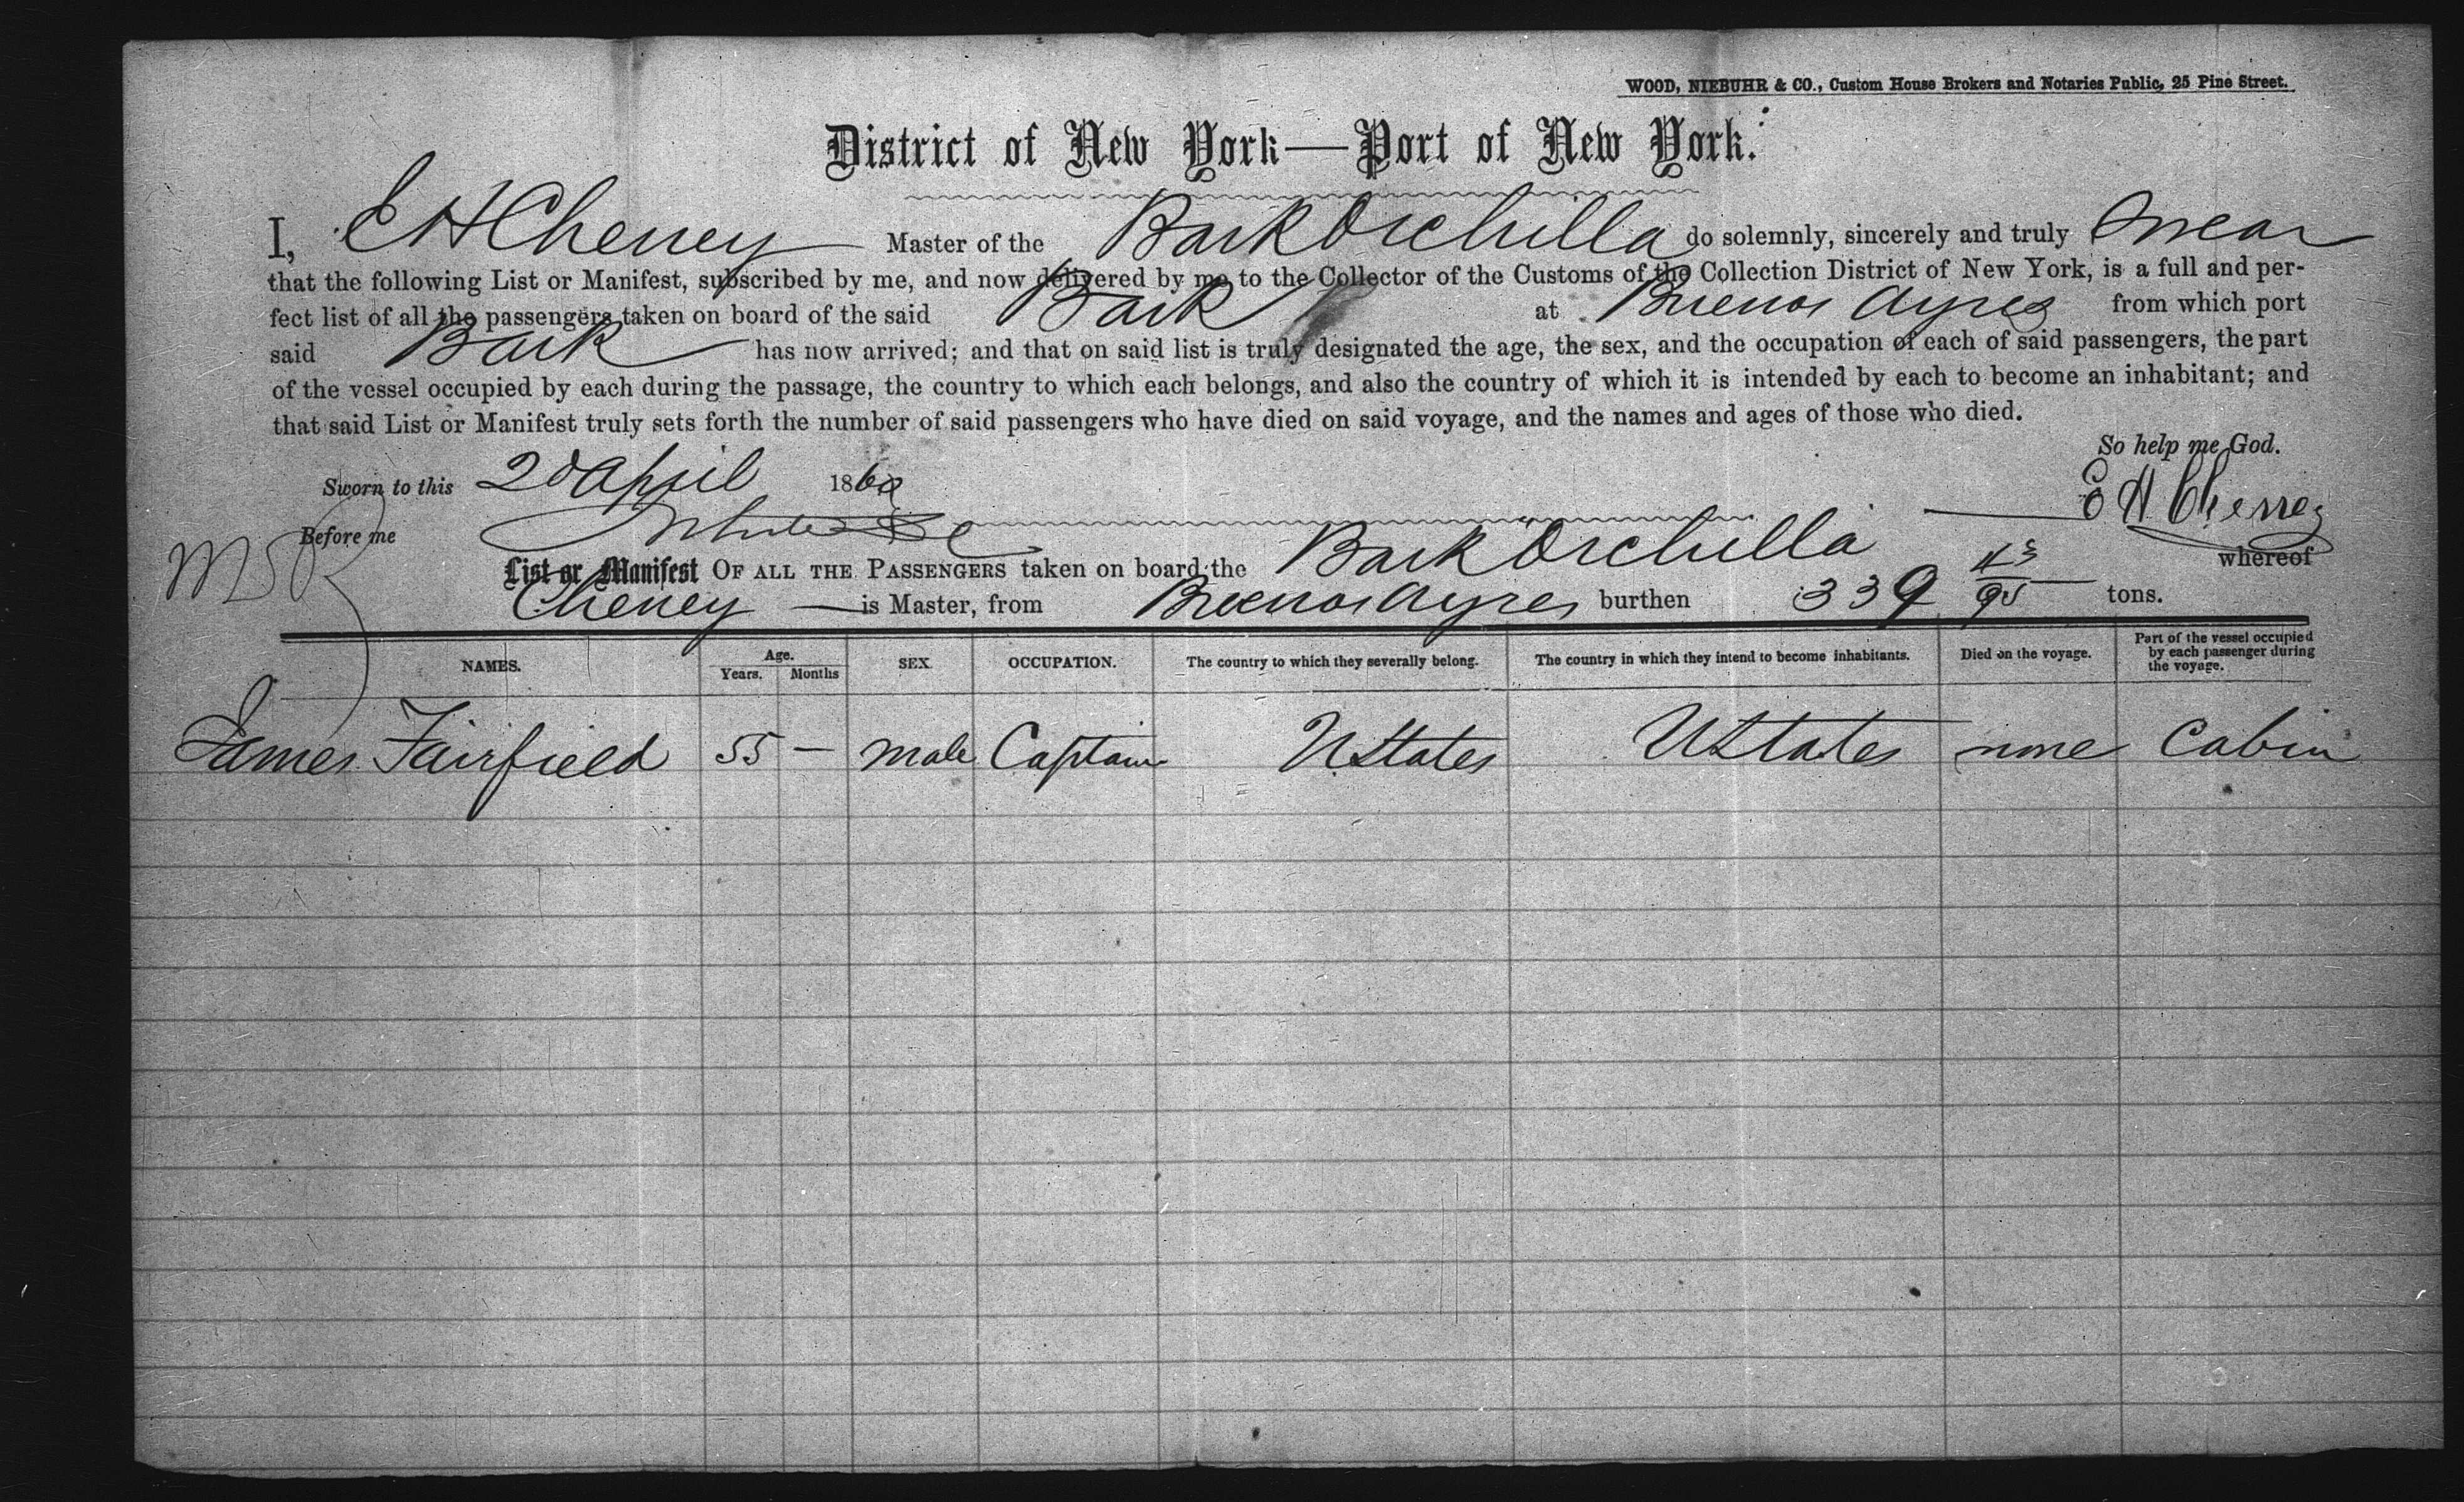 WOOD, NIEBUHR & CO., Custom House Brokers and Notaries Public, 25 Pine Street.
District of New York—Port of New York.
I, E H Cheney Master of the Bark Orchilla do solemnly, sincerely and truly swear
that the following List or Manifest, subscribed by me, and now delivered by me to the Collector of the Customs of the Collection District of New York, is a full and per-
fect list of all the passengers taken on board of the said Bark at Buenos Ayres from which port
said Bark has now arrived; and that on said list is truly designated the age, the sex, and the occupation of each of said passengers, the part
of the vessel occupied by each during the passage, the country to which each belongs, and also the country of which it is intended by each to become an inhabitant; and
that said List or Manifest truly sets forth the number of said passengers who have died on said voyage, and the names and ages of those who died.
So help me God.
Sworn to this 20 April 186
E H Cheney
Before me
List or Manifest OF ALL THE PASSENGERS taken on board the Bark Orchilla whereof
Cheney is Master, from Buenos Ayres burthen 339 /95 tons.
NAMES. Age. Years. Months SEX. OCCUPATION. The country to which they severally belong. The country in which they intend to become inhabitants. Died on the voyage. Part of the vessel occupied by each passenger during the voyage.
James Fairfield 55 — male Captain U States U States none Cabin